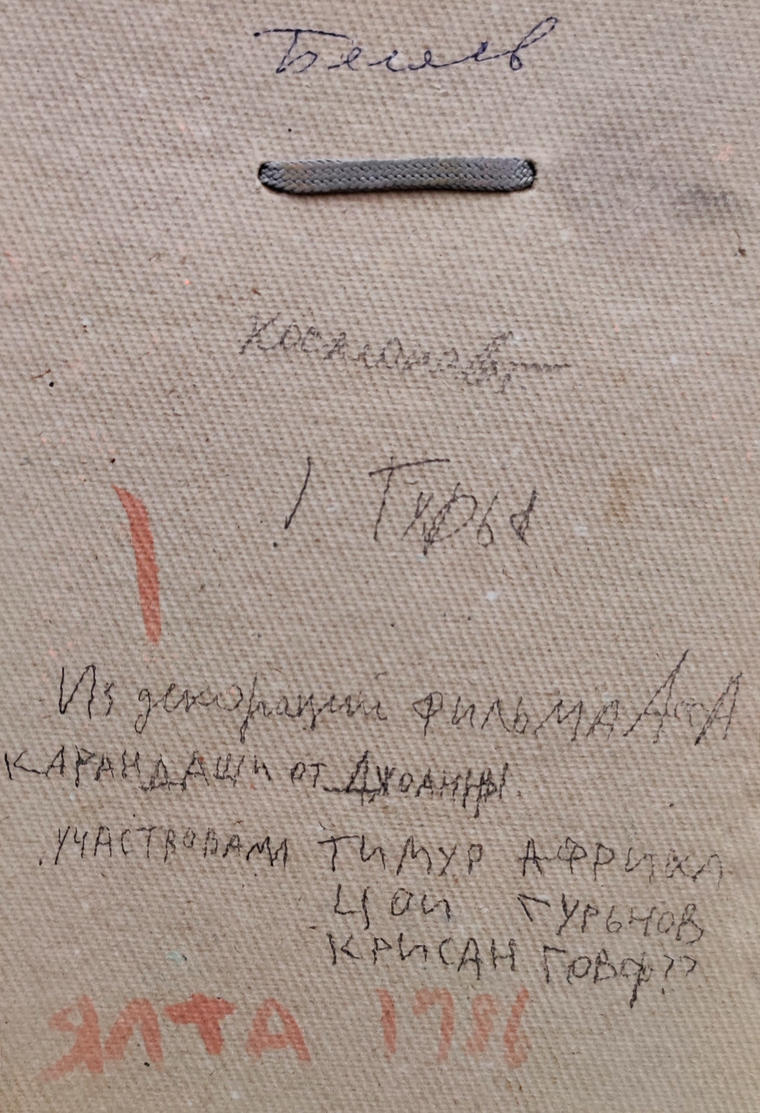 Беляев
Космонавт
! Гуры
Из декораций фильма АссА
КАРАНДАШИ от Джоанны.
УЧАСТВОВАЛИ ТИМУР АФРИКА
ЦОИ ГУРЬНОВ
КРИСАН ГОВФ??
ЯЛТА 1986